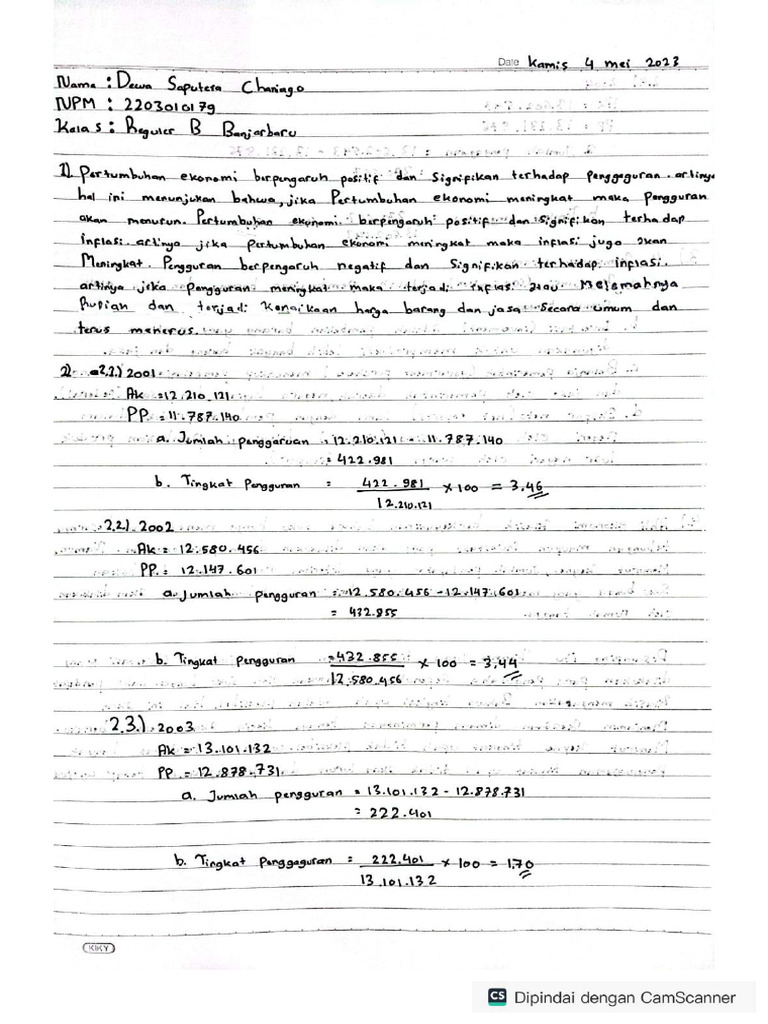 Date Kamis 4 mei 2023
Nama : Dewa Saputera Chaniago
NPM : 2203010179
Kelas : Reguler B Banjarbaru
1) Pertumbuhan ekonomi berpengaruh positif dan Signifikan terhadap penggaguran. artinya
hal ini menunjukan bahwa, jika Pertumbuhan ekonomi meningkat maka Pengguran
akan menurun. Pertumbuhan ekonomi berpengaruh positif dan signifikan terhadap
inflasi. artinya jika pertumbuhan ekonomi meningkat maka inflasi juga akan
Meningkat. Pengguran berpengaruh negatif dan Signifikan terhadap inflasi.
artinya jika pengguran meningkat maka terjadi inflasi atau Melemahnya
Rupiah dan terjadi Kenaikaan harga barang dan jasa Secara umum dan
terus menerus.
2) 2.2.) 2001
Ak = 12.210.121
PP = 11.787.140
a. Jumlah penggaruan = 12.210.121 - 11.787.140
= 422.981
b. Tingkat Pengguran = 422.981 x 100 = 3,46
12.210.121
2.2). 2002
Ak = 12.580.456
PP. = 12.147.601
a. Jumlah pengguran = 12.580.456 - 12.147.601
= 432.855
b. Tingkat pengguran = 432.855 x 100 = 3,44
12.580.456
2.3.) 2003
Ak = 13.101.132
PP = 12.878.731
a. Jumlah pengguran = 13.101.132 - 12.878.731
= 222.401
b. Tingkat penggaguran = 222.401 x 100 = 1,70
13.101.132
KIKY
CS Dipindai dengan CamScanner